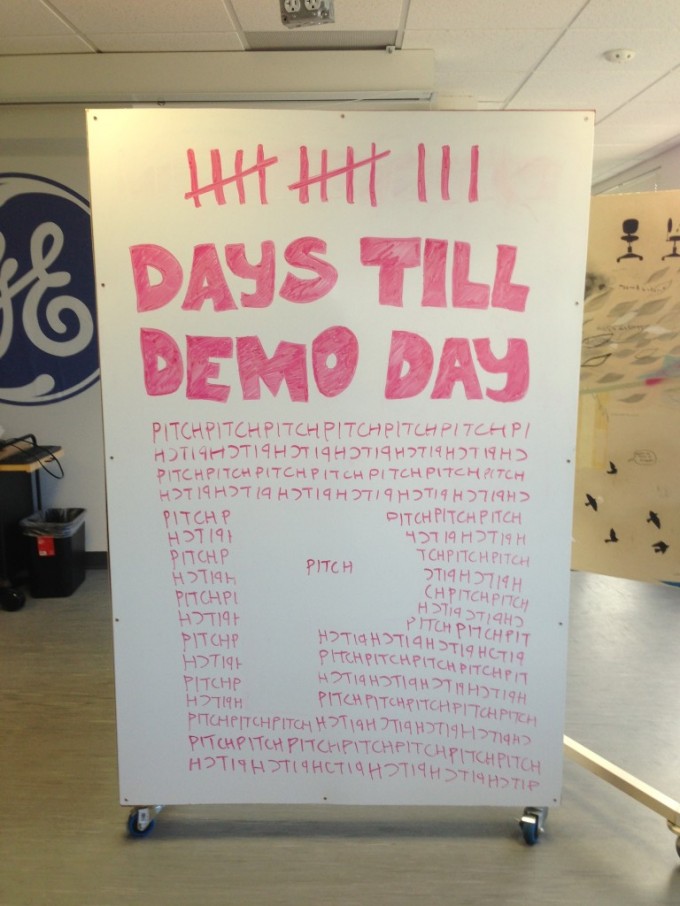 GE
DAYS TILL
DEMO DAY
PITCHPITCHPITCHPITCHPITCHPITCHPI
HCTIPHCTIPHCTIPHCTIPHCTIPHCTIPHC
PITCHPITCHPITCHPITCHPITCHPITCHPITCH
HCTIPHCTIPHCTIPHCTIPHCTIPHCTIPHC
PITCHP PITCHPITCHPITCH
HCTIPI HCTIPHCTIPH
PITCHP PITCH TCHPITCHPITCH
HCTIPH CTIPHCTIPH
PITCHPI CHPITCHPITCH
HCTIPH HCTIPHCTIPHC
PITCHP PITCHPITCHPIT
HCTIPH HCTIPHCTIPHCTIPHCTIP
PITCHP PITCHPITCHPITCHPITCHPIT
HCTIPH HCTIPHCTIPHCTIPHCTIPH
PITCHPITCHPITCHPITCHPITCH
PITCHPITCHPITCHHCTIPHCTIPHCTIPHCTIPHC
PITCHPITCHPITCHPITCHPITCHPITCHPITCH
HCTIPHCTIPHCTIPHCTIPHCTIPHCTIP